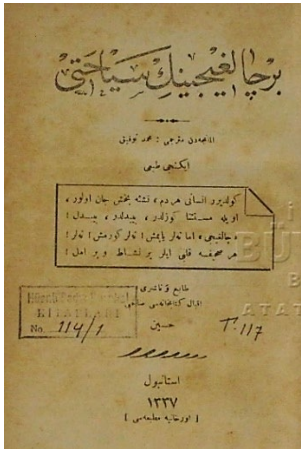 بر چالغیجینك سیاحتی
المانجه‌دن مترجمی : محمد توفیق
ایكنجی طبعی
كولدیرر انسانی هر دم ، نشئه بخش جان اولور ،
اویله مستثنا كوزلدر ، بیبدلدر ، بیبدل !
« چالغیجی » اما نه‌لر یاپمش ! نه‌لر كورمش ! نه‌لر !
هر صحیفه قلبی ایلر پر نشاط و پر امل !
طابع و ناشری
اقبال كتابخانه‌سی صاحبی
حسین
KİTAPLARI
No. 114/1
T. 117
استانبول
١٣٣٧
[ اورخانیه مطبعه‌سی ]
ATAT